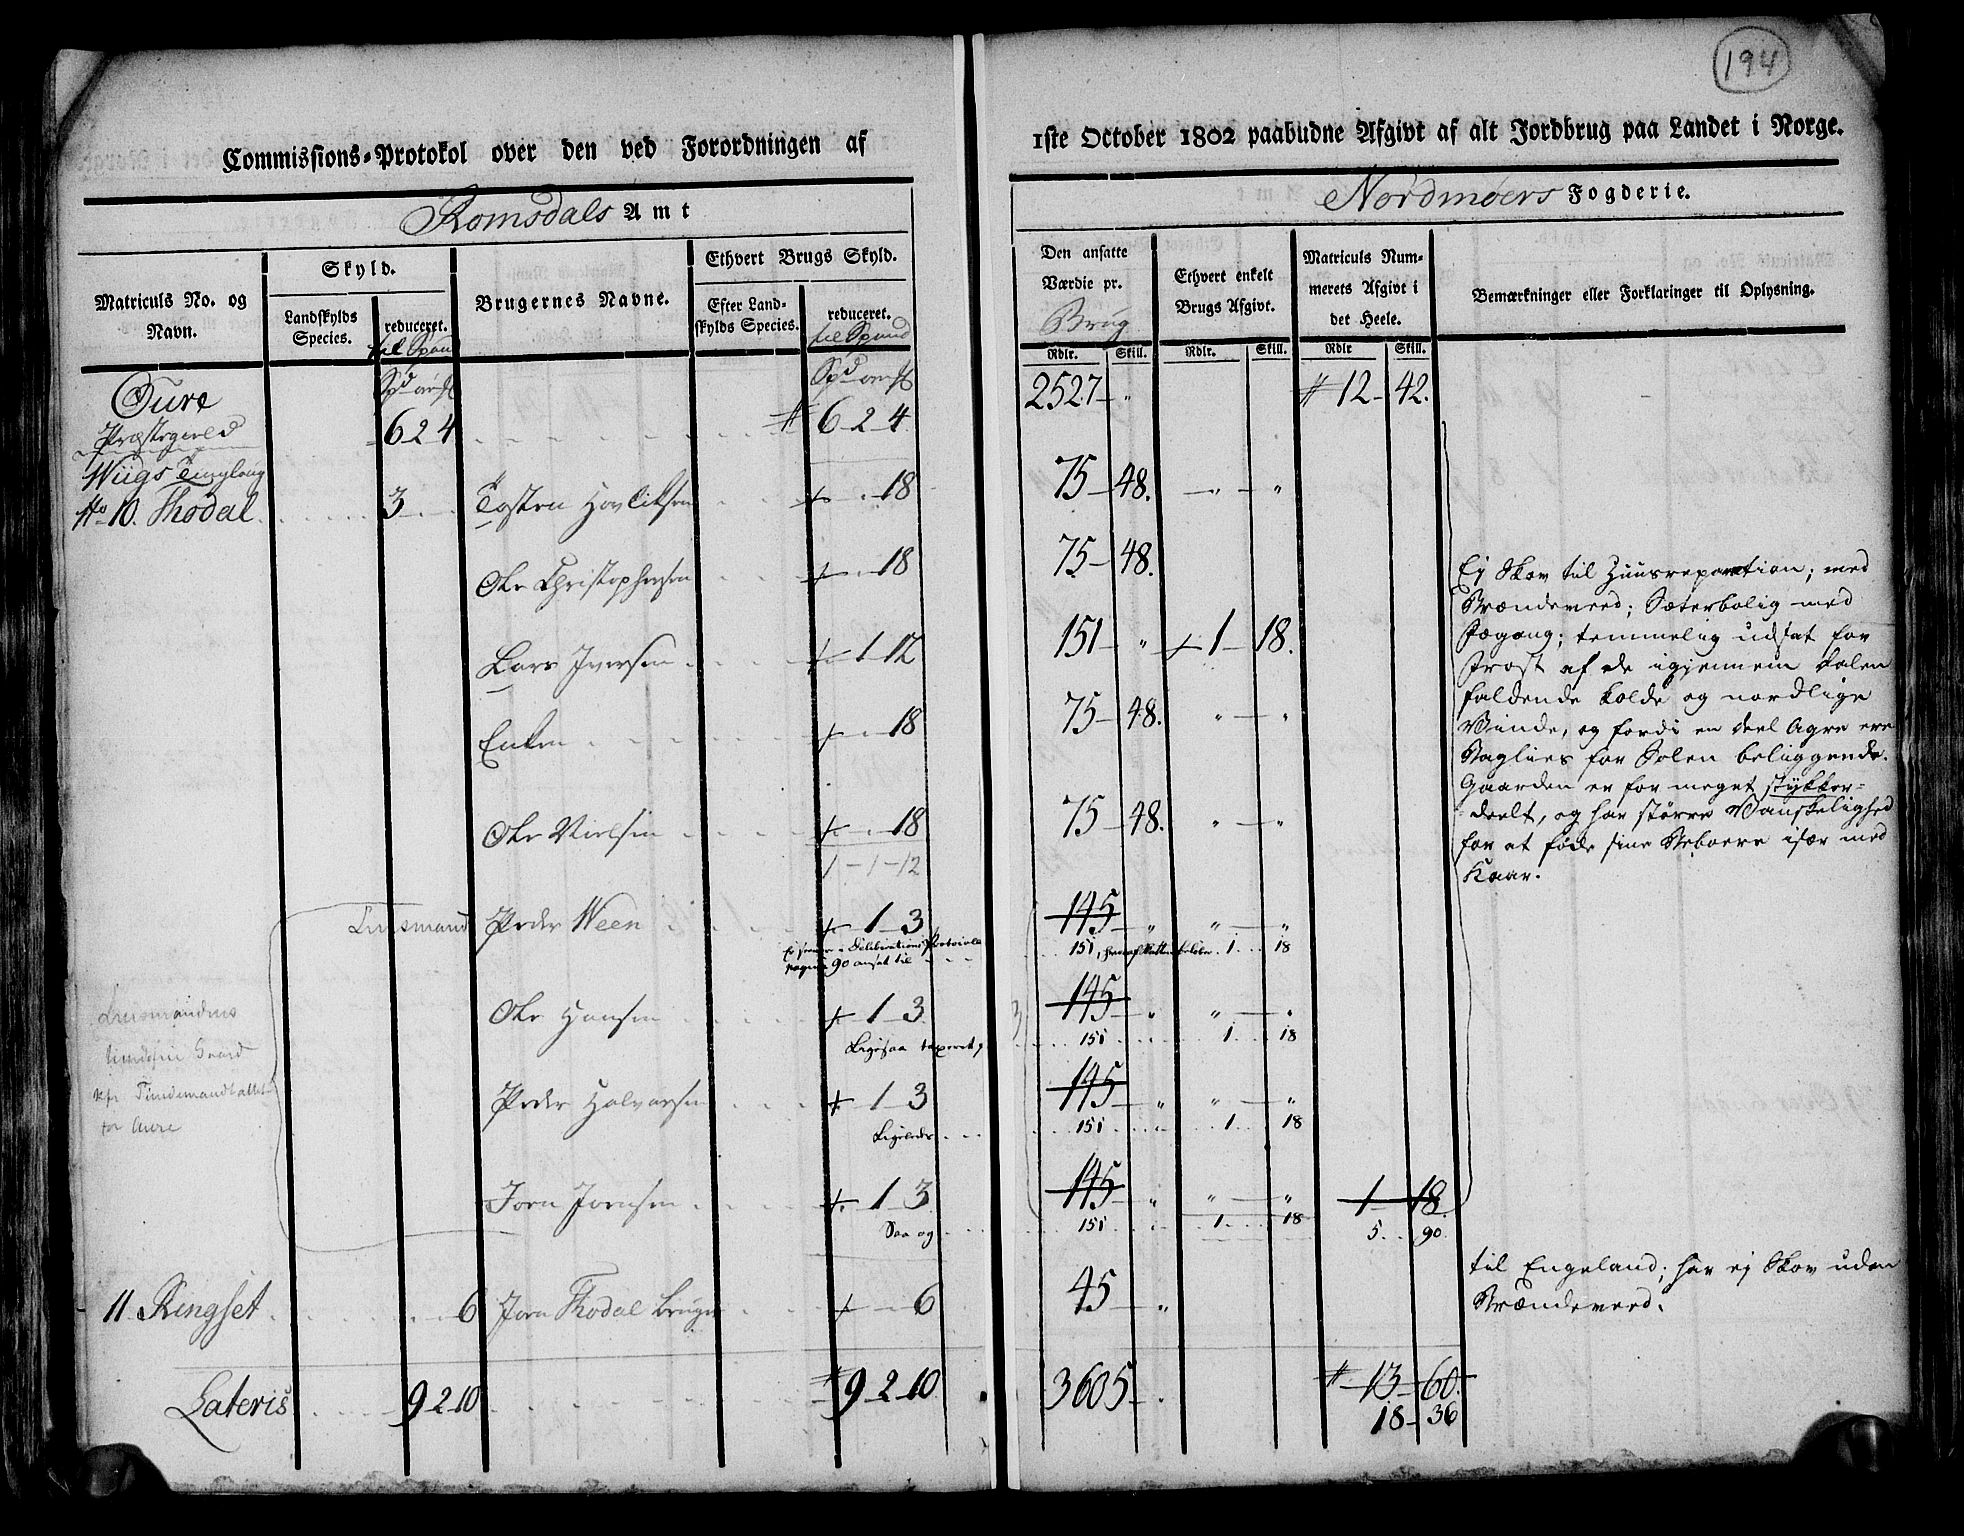 194
Commissions-Protokol over den ved Forordningen af
1ste October 1802 paabudne Afgivt af alt Jordbrug paa Landet i Norge.
Romsdals Amt
Nordmøers Fogderie.
Matriculs No. og Navn.
Skyld.
Landskylds Species.
reduceret. til Spand
Brugernes Navne.
Ethvert Brugs Skyld.
Efter Landskylds Species.
reduceret. til Spand
Den ansatte Værdie pr. Brug
Ethvert enkelt Brugs Afgivt.
Matriculs Nummerets Afgivt i det Heele.
Bemærkninger eller Forklaringer til Oplysning.
Rdlr. Skill. Rdlr. Skill. Rdlr Skill.
Oure
Præstegield 6 2 4 6-2-4 2527 - " 12 - 42.
Wiigs Tinglaug
No 10. Thodal 3 Tosten Hovlitsen 18 75-48. " "
Ole Christophersen 18 75-48.
Lars Iversen 1-12 151 - " 1-18.
Enken 18 75-48. " "
Ole Nielsen 18 75-48. " "
1-1-12
Ej Skov til Huusreparation; med
Brændeveed; Sæterbolig med
Jægang; temmelig udsat for
Frost af de igjennem Dalen
faldende kolde og nordlige
Vinde, og fordi en deel Agre ere
Baglies for Solen beliggende.
Gaarden er for meget stykker-
deelt, og har større Vanskelighed
for at føde sine Beboere især med
Kaar.
Leensmand Peder Ween 1-3 145 " " "
pagina 90 ansat til 151, 1 18
Ole Hansen 1-3 145 " " "
Ligesaa taxeret, 151 1 18
Leensmandens
Gaard
for Aure
Peder Halvorsen 1-3 145 " " "
Ligeledes 151 1 18
Jorn Jornsen 1-3 145 " " " 1-18
Saa og 151 1 18 5 90
11 Ringset 6 Jorn Thodal bruger 6 45 "
til Engeland; har ej Skov uden
Brændeveed.
Lateris 9-2-10 9-2-10 3605 13-60
18-36